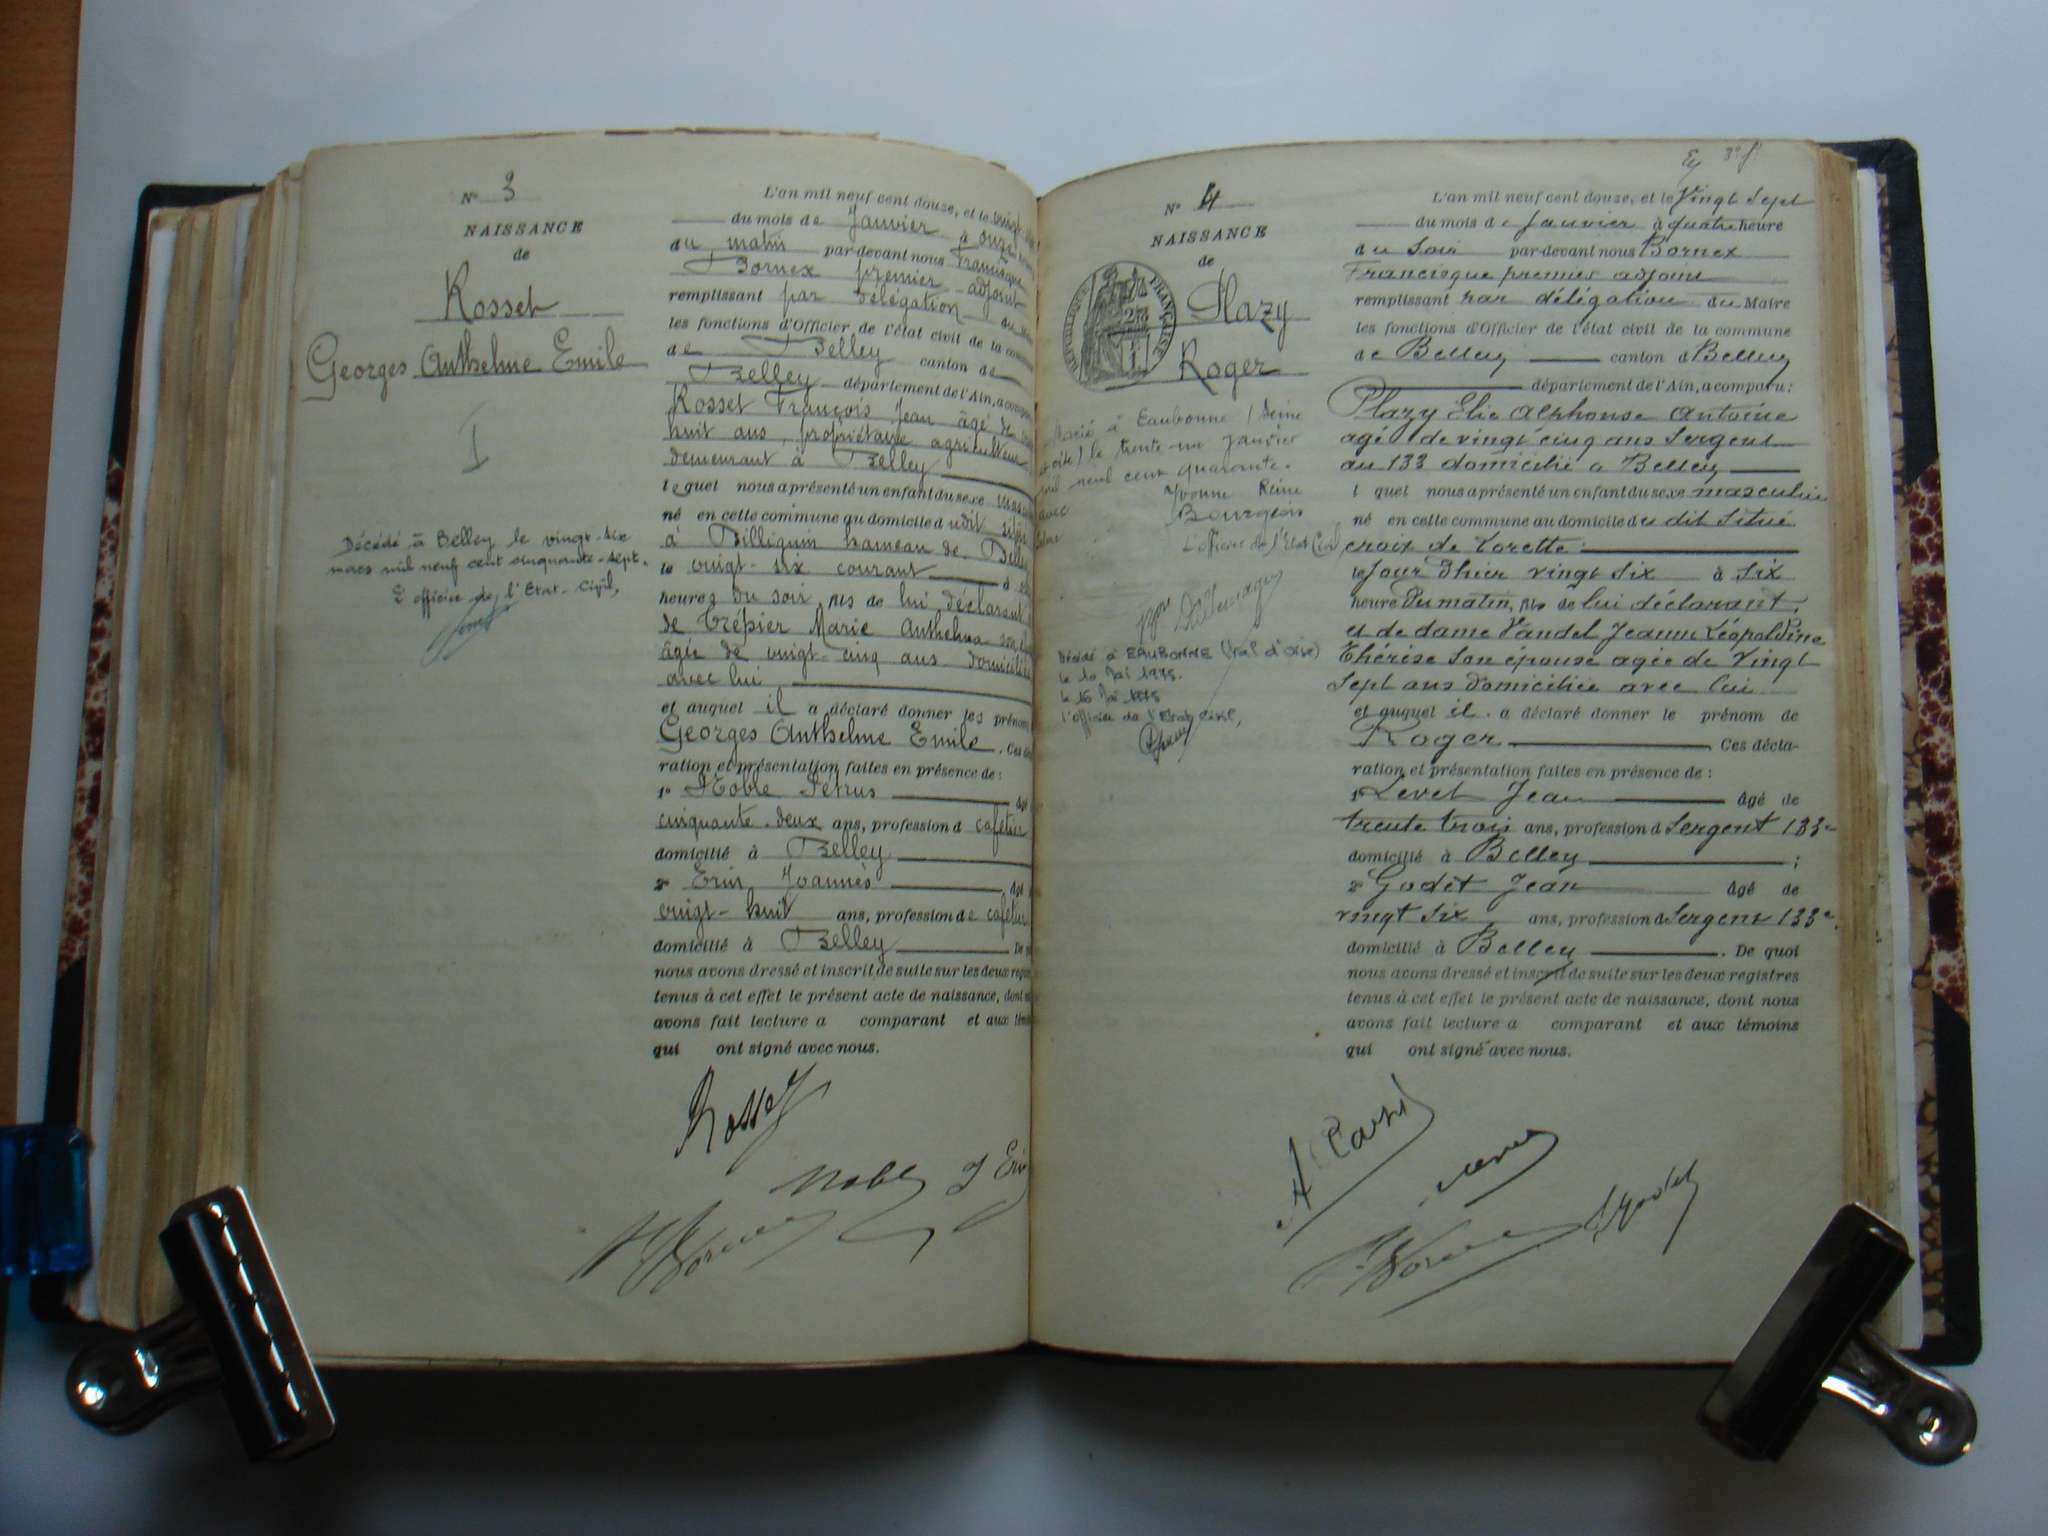 N° 3
NAISSANCE
de
Rosset
Georges Anthelme Emile
I
Décédé à Belley le vingt-six
mars mil neuf cent cinquante-sept.
L'officier de l'Etat-Civil,
L'an mil neuf cent douze, et le vingt
du mois de Janvier à onze
du matin par-devant nous Francisque
Bornex premier adjoint
remplissant par délégation du
les fonctions d'Officier de l'état civil de la
de Belley canton de
Belley département de l'Ain, a
Rosset François Jean âgé de
huit ans, propriétaire agriculteur
demeurant à Belley
lequel nous a présenté un enfant du sexe
né en cette commune au domicile dudit
à Billignin hameau de
le vingt-six courant à
heures du soir, fils de lui déclarant
de Trépier Marie Anthelma
âgée de vingt-cinq ans domiciliée
avec lui
et auquel il a déclaré donner les prénoms
Georges Anthelme Emile. Ces
ration et présentation faites en présence de :
1° Noble Pétrus âgé
cinquante-deux ans, profession d cafetier
domicilié à Belley
2° Erin Joannès, âgé
vingt-huit ans, profession de cafetier
domicilié à Belley De
nous avons dressé et inscrit de suite sur les deux
tenus à cet effet le présent acte de naissance, dont
avons fait lecture a comparant et aux
qui ont signé avec nous.
Rosset
Noble J Erin
Bornex
Ey 3e f
N° 4
NAISSANCE
de
REPUBLIQUE FRANÇAISE
Plazy
Roger
Marié à Eaubonne (Seine
et oise) le trente-un janvier
mil neuf cent quarante.
avec Yvonne Reine
Bourgeois
L'officier de l'Etat Civil,
Décédé à EAUBONNE (Val d'oise)
le 10 Mai 1975.
le 16 Mai 1975
l'officier de l'Etat Civil,
L'an mil neuf cent douze, et le Vingt Sept
du mois de Janvier à quatre heure
du Soir par-devant nous Bornex
Francisque premier adjoint
remplissant par délégation du Maire
les fonctions d'Officier de l'état civil de la commune
de Belley canton d Belley
département de l'Ain, a comparu :
Plazy Elie Alphonse Antoine
agé de vingt cinq ans Sergent
au 133 domicilié a Belley
l quel nous a présenté un enfant du sexe masculin
né en cette commune au domicile du dit Situé
croix de Lorette.
le Jour d'hier vingt six à six
heure Du matin, fils de lui déclarant,
et de dame Vandel Jeanne Léopoldine
Thérèse Son épouse agée de Vingt
Sept ans Domiciliée avec lui
et auquel il a déclaré donner le prénom de
Roger Ces décla-
ration et présentation faites en présence de :
1° Levet Jean âgé de
trente trois ans, profession d Sergent 133e
domicilié à Belley ;
2° Godet Jean âgé de
vingt six ans, profession d Sergent 133e
domicilié à Belley. De quoi
nous avons dressé et inscrit de suite sur les deux registres
tenus à cet effet le présent acte de naissance, dont nous
avons fait lecture a comparant et aux témoins
qui ont signé avec nous.
Bornex
J Godet